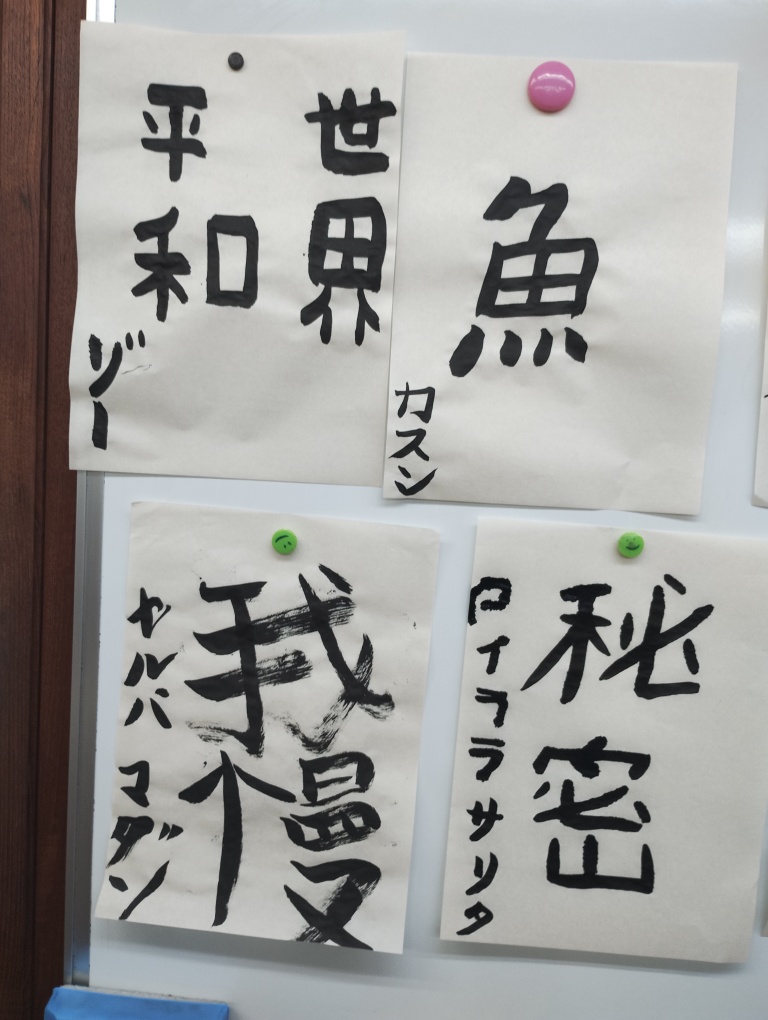 世界
平和
ジー
魚
カスン
我慢
ヤルバ
マダン
秘密
ロイララサリタ